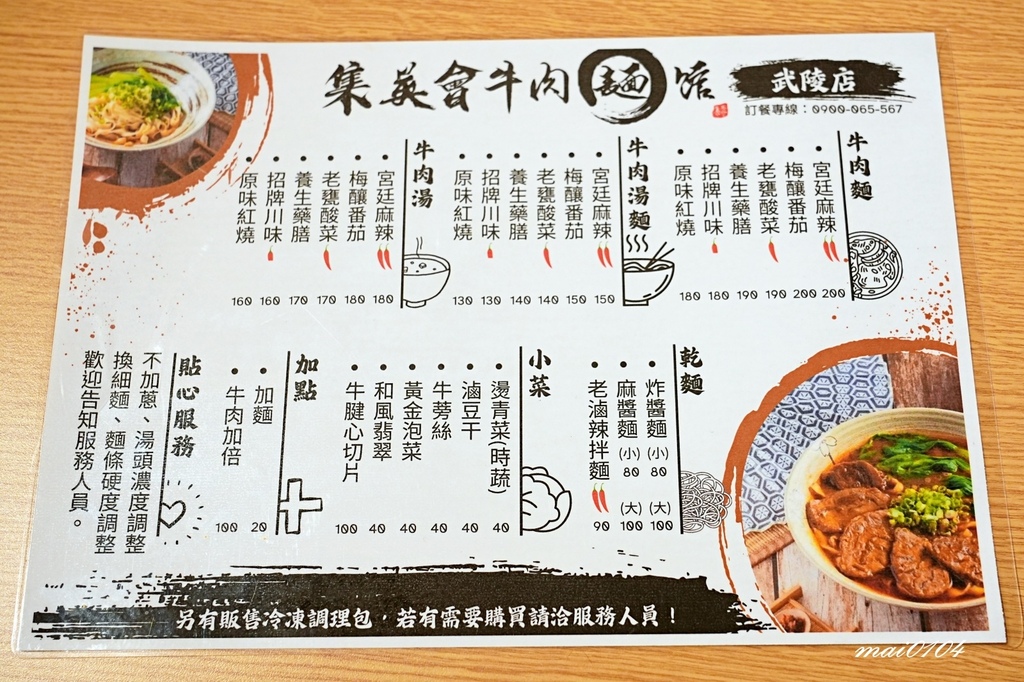 集英會牛肉麵
武陵店
訂餐專線：0900-065-567
牛肉麵
宮廷麻辣 200
梅釀番茄 200
老甕酸菜 190
養生藥膳 190
招牌川味 180
原味紅燒 180
牛肉湯麵
宮廷麻辣 150
梅釀番茄 150
老甕酸菜 140
養生藥膳 140
招牌川味 130
原味紅燒 130
牛肉湯
宮廷麻辣 180
梅釀番茄 180
老甕酸菜 170
養生藥膳 170
招牌川味 160
原味紅燒 160
乾麵
炸醬麵 (小) 80 (大) 100
麻醬麵 (小) 80 (大) 100
老滷辣拌麵 90
小菜
燙青菜(時蔬) 40
滷豆干 40
牛蒡絲 40
黃金泡菜 40
和風翡翠 40
牛腱心切片 100
加點
加麵 20
牛肉加倍 100
貼心服務
不加蔥、湯頭濃度調整
換細麵、麵條硬度調整
歡迎告知服務人員。
另有販售冷凍調理包，若有需要購買請洽服務人員！
mai0704